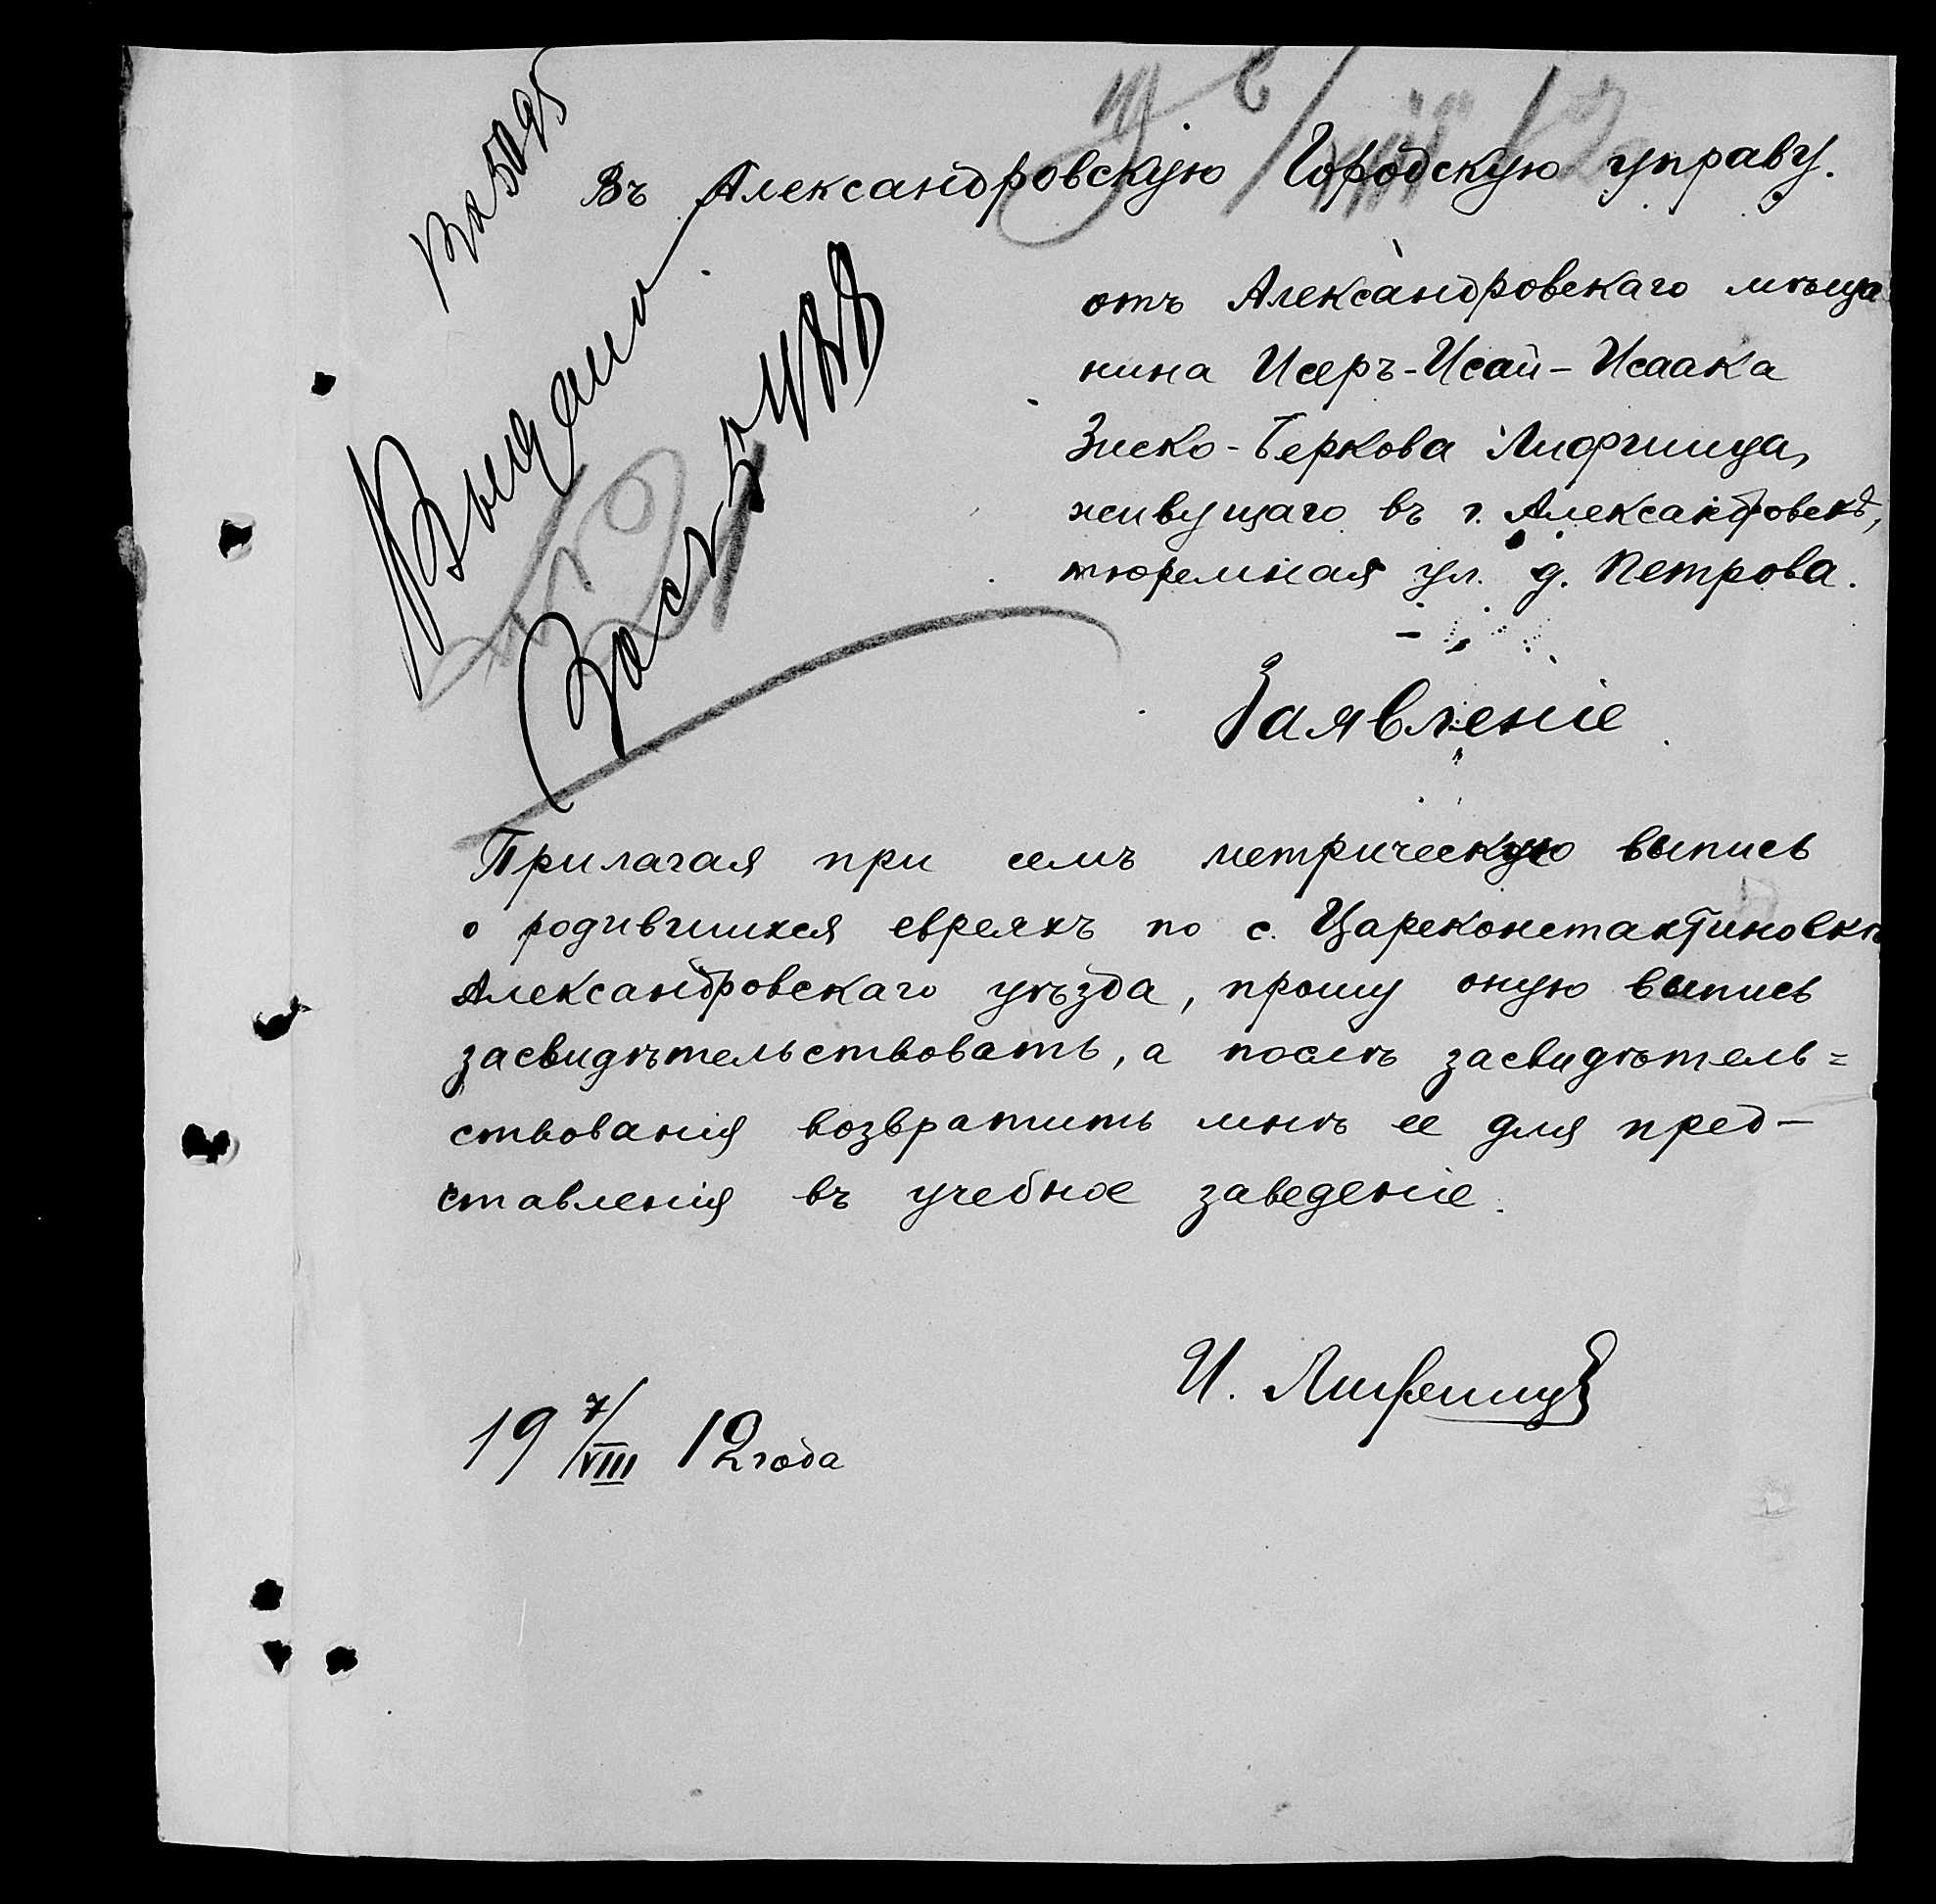 Въ Александровскую Городскую управу.
отъ Александровскаго мѣща
нина Исеръ-Исай-Исаака
Зиско-Беркова Лифшица,
живущаго въ г. Александровскѣ,
тюремная ул. д. Петрова.
Заявленіе
Прилагая при семъ метрическую выпись
о родившихся евреяхъ по с. Цареконстантиновкѣ
Александровскаго уѣзда, прошу оную выпись
засвидѣтельствовать, а послѣ засвидѣтель=
ствованія возвратить мнѣ ее для пред-
ставленія въ учебное заведеніе.
И. Лифшицъ
19 7/VIII 12 года